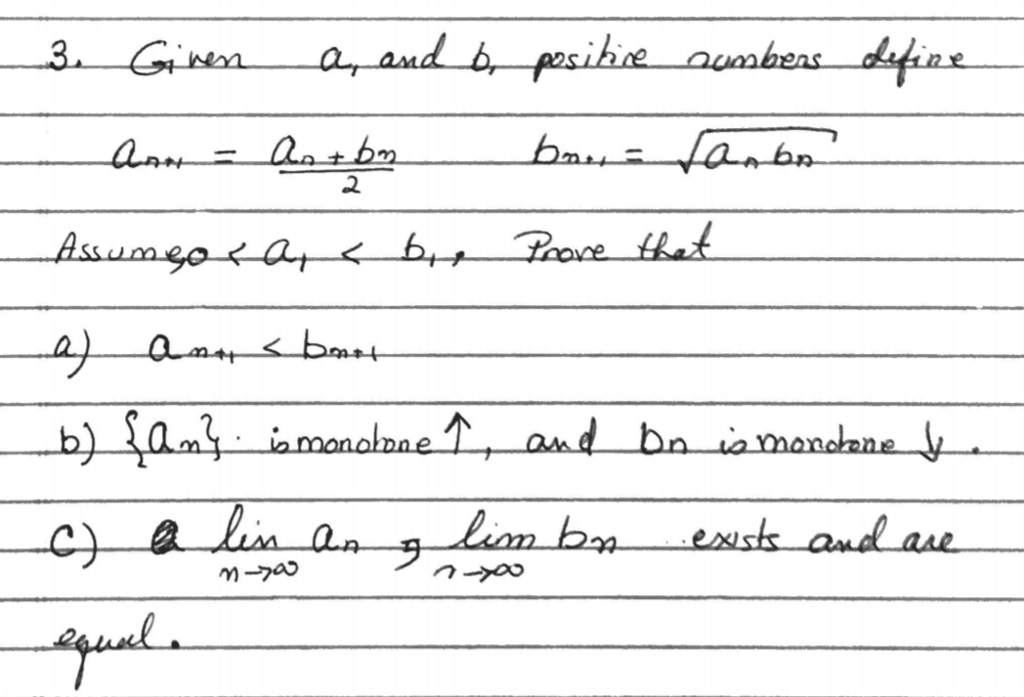 3. Given a₁ and b₁ positive numbers define
aₙ₊₁ = (aₙ + bₙ)/2 bₙ₊₁ = √(aₙ bₙ)
Assume 0 < a₁ < b₁, Prove that
a) aₙ₊₁ < bₙ₊₁
b) {aₙ} is monotone ↑, and bₙ is monotone ↓.
c) lim n→∞ aₙ, lim n→∞ bₙ exists and are
equal.